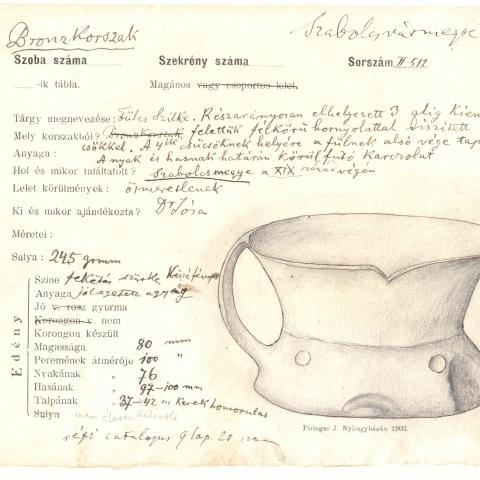 Bronzkorszak
Szabolcsvármegye
Szoba száma
Szekrény száma
Sorszám II 512
-ik tábla.
Magános vagy csoportos lelet.
Tárgy megnevezése: Füles Szilke. Részarányosan elhelyezett 3 alig kien
Mely korszakból? Bronzkorszak felettük félkörű hornyolattal díszített
csökkel. A 4ik csücsöknek helyére a fülnek alsó vége tap
Anyaga: A nyak és hasnak határán körülfutó karczolat
Hol és mikor találtatott? Szabolcsmegye a XIX század végén
Lelet körülmények: ösmeretlenek
Ki és mikor ajándékozta? Dr Jósa
Méretei:
Sulya: 245 gramm
Edény
Szine feketés szürke
Anyaga jól égetett agyag
Jó v. rosz gyurma
Korongon v. nem
Korongon készült
Magassága 80 mm
Peremének átmérője 100 "
Nyakának " 76
Hasának " 97-100 mm
Talpának " 37-42 " kerek homorulas
Sulya
régi catalogus 9 lap 20 szám
Piringer J. Nyiregyházán 1900.